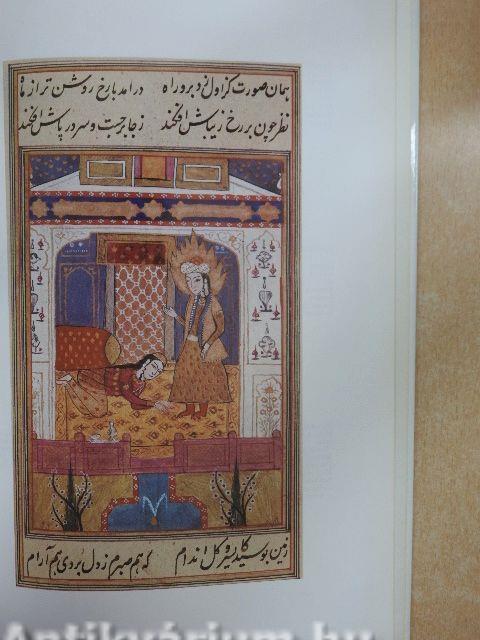 همان صورت کز اول زد برو راه درآمد بارخ روشن تر از ماه
نظر چون بر رخ زیباش افکند ز جا برجست و سر در پاش افکند
زمین بوسید کای سرو گل اندام که هم صبرم ز دل بردی هم آرام
Antikvárium.hu